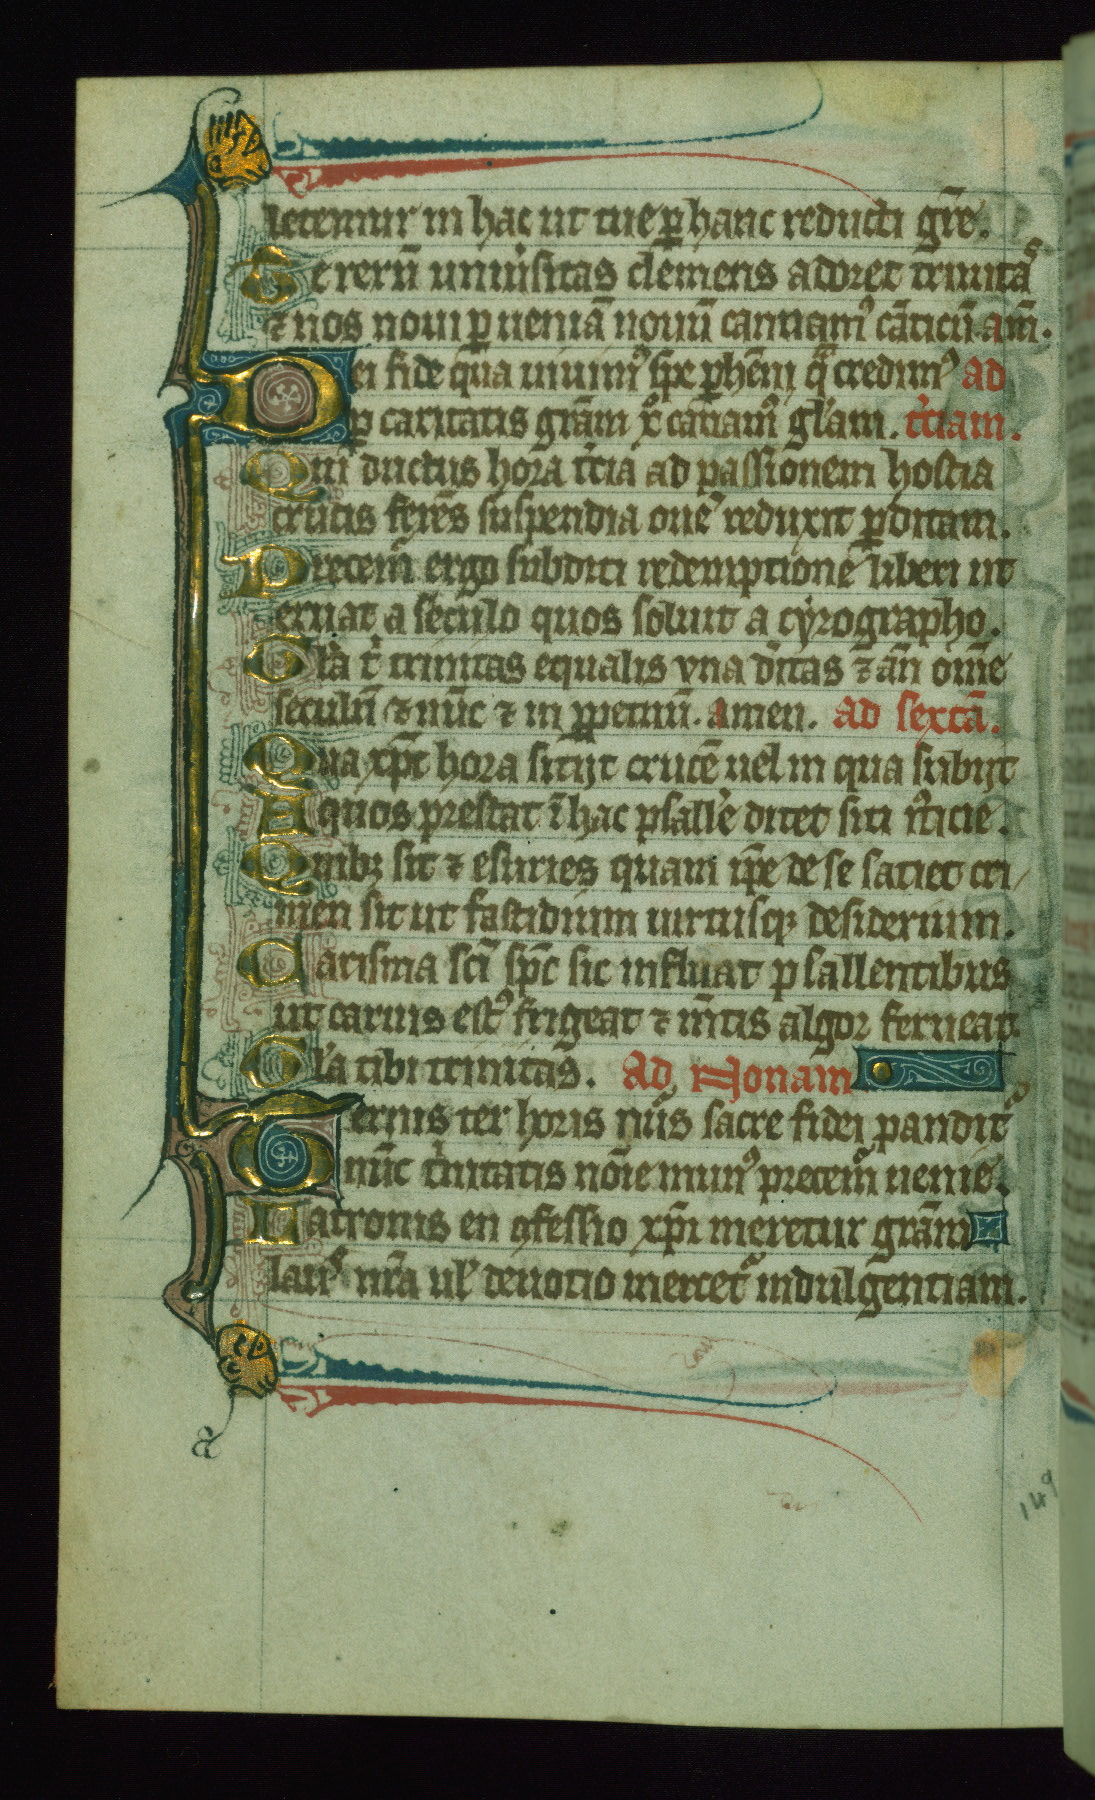 letemur in hac ut tue ꝑ hanc reducti gr̄e.
Et rerū uniu'sitas clemens adoret trinitas
⁊ nos noui ꝑ ueniā nouū canamꝰ cāticū. am̄.
Dei fide qua uiuimꝰ spe ꝑhēni q̄ credimꝰ ad
ꝑ caritatis grām xp̄ canamꝰ gl'am. t'ciam.
Qui ductus hora t'cia ad passionem hostia
crucis ferēs suspendia ouē reduxit ꝑditam.
Precem̄ ergo subditi redemptione liberi ut
eruat a seculo quos soluit a cyrographo.
Gl'a t' trinitas equalis vna d'itas ⁊ añ om̄e
seculū ⁊ nūc ⁊ in ꝑpetuū. amen. ad sextā.
Qua xp̄c hora sitijt crucē uel in qua subijt
Quos prestat ī hac psall'e ditet siti iꝰticie.
Quibꝫ sit ⁊ esuries quam ip̄e de se saciet cri
men sit ut fastidium uirtusqꝫ desiderium.
Carisma sc̄i sp̄c sic influat psallentibus
ut carnis estꝰ frigeat ⁊ m̄tis algor ferueat.
Gl'a tibi trinitas. Ad Nonam
Ternis ter horis nūs sacre fidei pandit'
nūc t'initatis nōie munꝰ precem̄ uenie.
Latronis en ꝯfessio xp̄i meretur grām
laus nr̄a ul' deuotio mercet' indulgentiam.
149